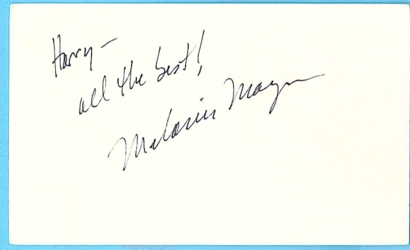 Harry—
all the best!
Melanie Mayron